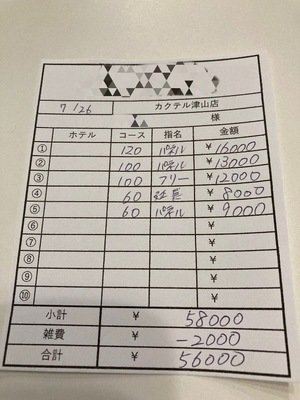 7/26 カクテル津山店
様
ホテル コース 指名 金額
① 120 パネル ¥16000
② 100 パネル ¥13000
③ 100 フリー ¥12000
④ 60 延長 ¥8000
⑤ 60 パネル ¥9000
⑥ ¥
⑦ ¥
⑧ ¥
⑨ ¥
⑩ ¥
小計 ¥ 58000
雑費 ¥ -2000
合計 ¥ 56000